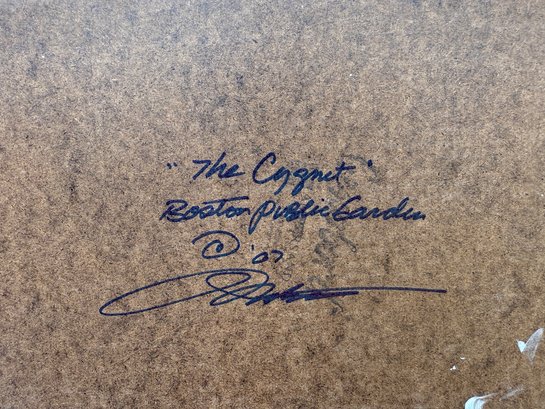 "The Cygnet"
Boston Public Garden
© '07